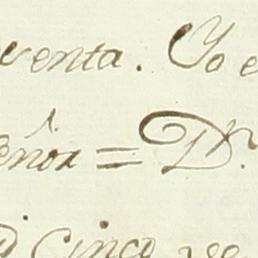 venta. Yo e
eñor = Dr.
cinco ve